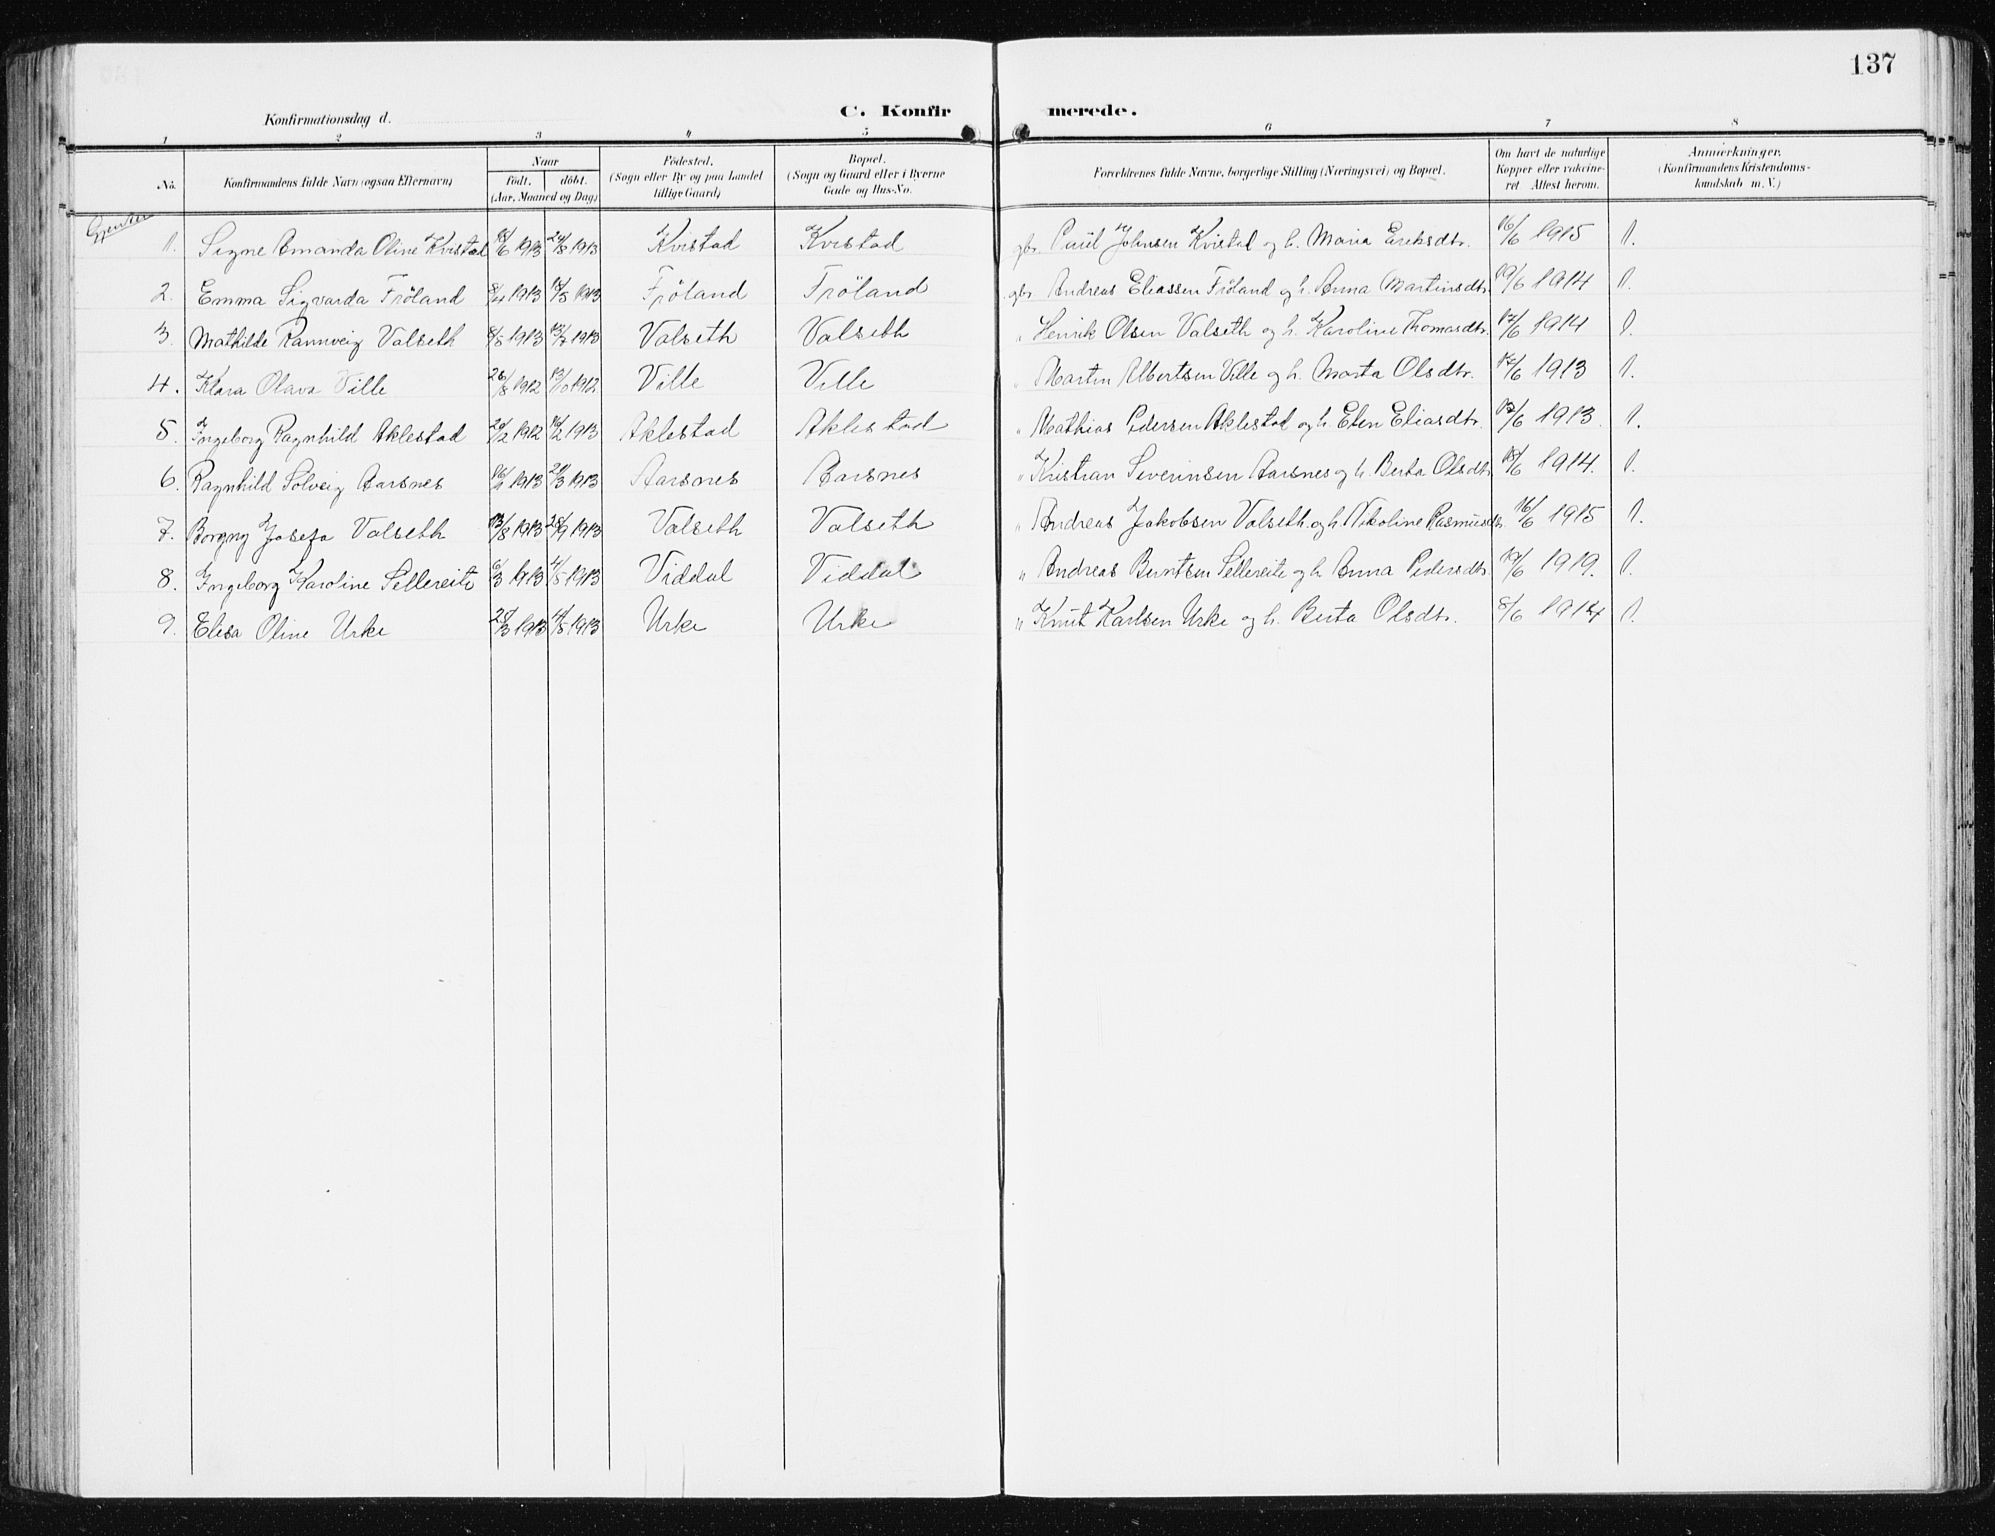 137
C. Konfir merede.
Konfirmationsdag d.
1 2 3 4 5 6 7 8
No. Konfirmandens fulde Navn (ogsaa Efternavn) Naar født. døbt. (Aar, Maaned og Dag) Fødested. (Sogn eller By og paa Landet tillige Gaard) Bopæl. (Sogn og Gaard eller i Byerne Gade og Hus-No. Forældrenes fulde Navne, borgerlige Stilling (Næringsvei) og Bopæl. Om havt de naturlige Kopper eller vaccineret Attest herom. Anmærkninger. (Konfirmandens Kristendomskundskab m. V.)
Gjenter
1. Signe Amanda Oline Kvistad 18/6 1913 24/8 1913 Kvistad Kvistad gbr. Paul Johnsen Kvistad og h. Maria Eriksdtr. 16/6 1915 1.
2. Emma Sigvarda Fröland 8/4 1913 12/5 1913 Fröland Fröland gbr. Andreas Eliassen Fröland og h. Anna Martinsdtr. 19/6 1914 1.
3. Mathilde Rannveig Valseth 8/5 1913 13/7 1913 Valseth Valseth " Henrik Olsen Valseth og h. Karoline Thomasdtr. 17/6 1914 1.
4. Klara Olava Ville 26/8 1912 13/10 1912 Ville Ville " Martin Albertsen Ville og h. Marta Olsdtr. 12/6 1913 1.
5. Ingeborg Ragnhild Aklestad 20/12 1912 16/2 1913 Aklestad Aklestad " Mathias Pedersen Aklestad og h. Elen Eliasdtr. 13/6 1913. 1.
6. Ragnhild Solveig Aarsnes 16/1 1913 21/3 1913 Aarsnes Aarsnes " Kristian Severinsen Aarsnes og h. Berta Olsdtr. 18/6 1914. 1.
7. Borgny Josefa Valseth 13/8 1913 28/9 1913 Valseth Valseth " Andreas Jakobsen Valseth og h. Nikoline Rasmusdtr. 16/6 1915 1.
8. Ingeborg Karoline Sellereite 6/3 1913 4/5 1913 Viddal Viddal " Andreas Berntsen Sellereite og h. Anna Pedersdtr. 17/6 1919. 1.
9. Elisa Oline Urke 28/3 1913 11/5 1913 Urke Urke " Knut Karlsen Urke og h. Berta Olsdtr. 8/6 1914 1.